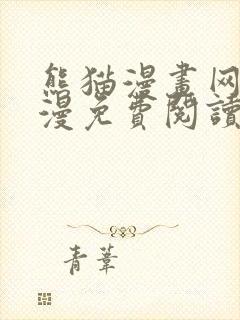 熊猫漫畫网
漫免費閱讀
青葦